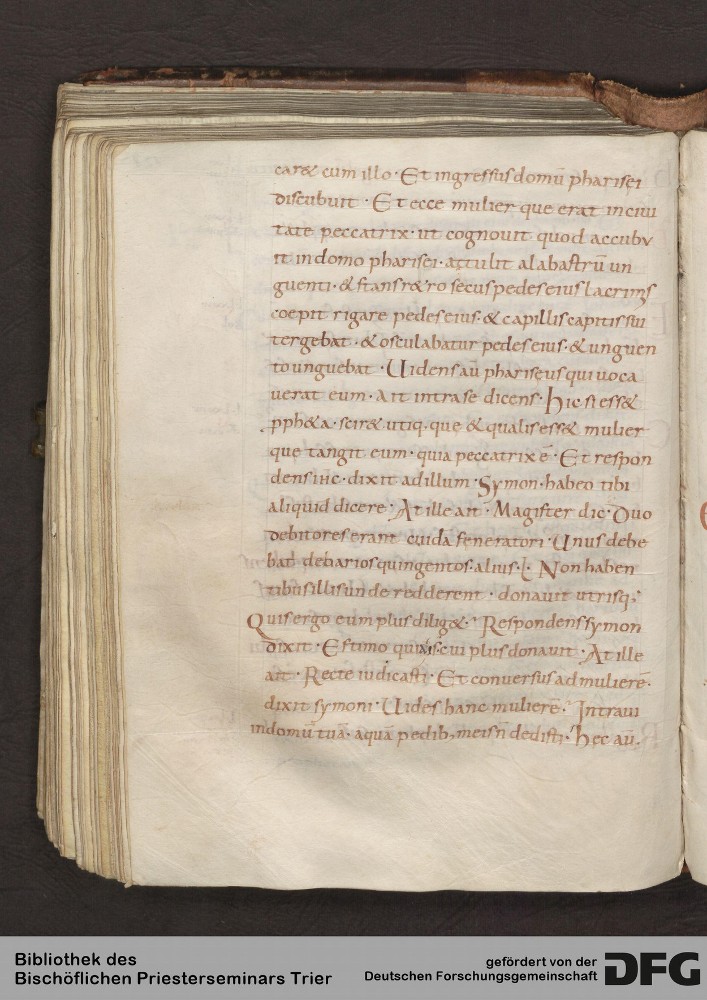 car& cum illo · Et ingressus domū pharisei
discubuit · Et ecce mulier que erat in ciui
tate peccatrix · ut cognouit quod accubu
it in domo pharisei · attulit alabastrū un
guenti · & stans r&ro secus pedes eius lacrimis
coepit rigare pedes eius · & capillis capitis sui
tergebat · & osculabatur pedes eius · & unguen
to unguebat · Uidens aū phariseus qui uoca
uerat eum · ait intra se dicens · hic si ess&
pph&a · scir& utiq. que & qualis ess& mulier
que tangit eum · quia peccatrix ē · Et respon
dens ihc · dixit ad illum · Symon · habeo tibi
aliquid dicere · At ille ait · Magister dic · Duo
debitores erant cuidā feneratori · Unus debe
bat debarios quingentos · alius · L · Non haben
tibus illis unde redderent · donauit utrisq;
Quis ergo eum plus dilig& · Respondens symon
dixit · Estimo quia is cui plus donauit · At ille
ait · Recte iudicasti · Et conuersus ad mulierē ·
dixit symoni · Uides hanc mulierē · Intraui
in domū tuā · aquā pedib; meis ñ dedisti · hec aū ·
Bibliothek des
Bischöflichen Priesterseminars Trier
gefördert von der
Deutschen Forschungsgemeinschaft
DFG